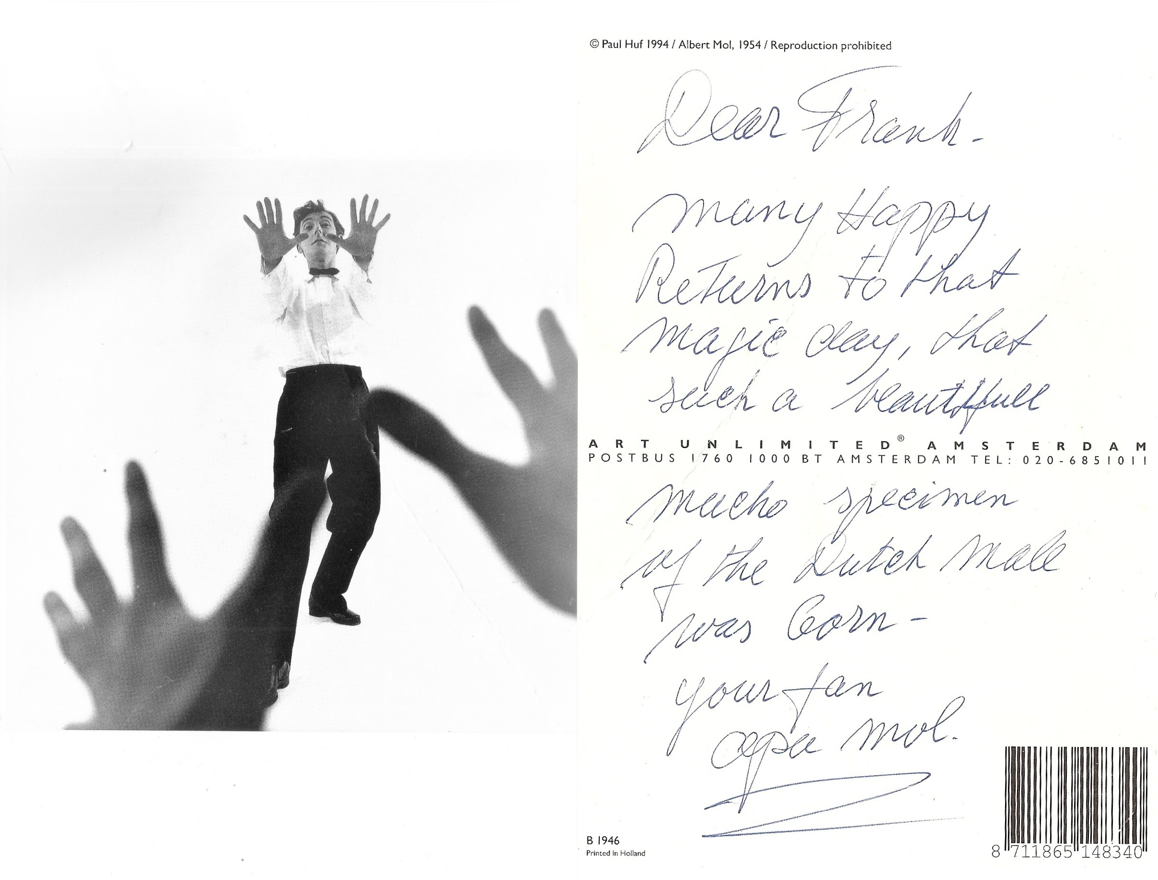 © Paul Huf 1994 / Albert Mol, 1954 / Reproduction prohibited
Dear Frank -
Many Happy
Returns to that
magic day, that
such a beautifull
ART UNLIMITED® AMSTERDAM
POSTBUS 1760 1000 BT AMSTERDAM TEL: 020-6851011
macho specimen
of the Dutch Male
was born -
your fan
Mol.
B 1946
Printed in Holland
8 711865 148340